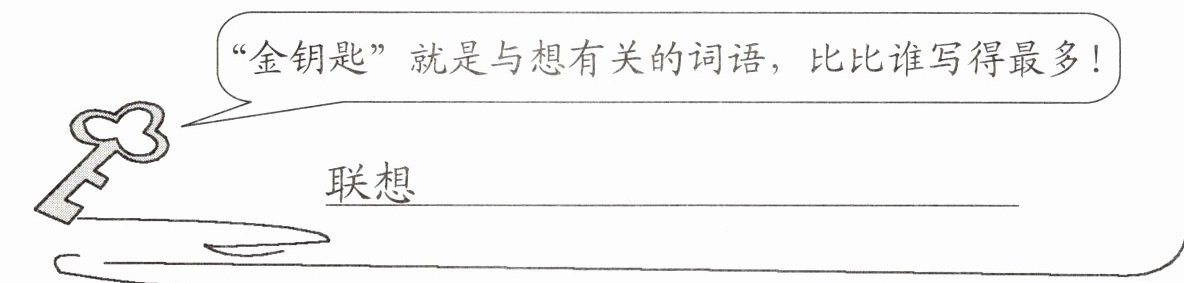 “金钥匙”就是与想有关的词语，比比谁写得最多！
联想